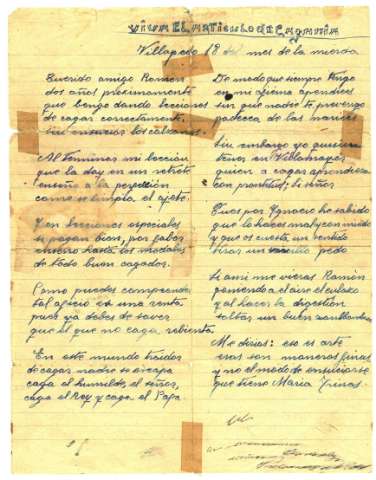 VIVA EL ARTICULO DE CAGANIA
Villapedo 18 del mes de la mierda
Querido amigo Ramon
dos años proximamente
que bengo dando lecciones
de cagar correctamente
sin ensucios los calzones
Al terminar mi leccion
que la doy en un retrete
enseño a la perfeccion
como se limpia el ojete.
Y en lecciones especiales
si pagan bien, por favor
enseño hasta los modales
de todo buen cagador.
Como puedes comprender
tal oficio es una renta
pues ya debes de saver
que el que no caga rebienta.
En este mundo traidor
de cagar nadie se escapa
caga el humilde, el señor,
caga el Rey y caga el Papa.
De modo que siempre tengo
en mi oficina aprendices
sin que nadie te prevengo
padezca de las narices
Sin embargo yo quisiera
teneros en Villamayor
quien a cagar aprendiera
con prontitud; si señor
Pues por Ignacio he sabido
que lo haces mal y con miedo
y que os cuesta un sentido
tirar un sencillo pedo
Si ami me vieras Ramón
poniendo al aire el culazo
y al hacer la digestión
soltar un buen
Me dirias: eso es arte
esas son maneras finas
y no el modo de ensuciarse
que tiene Maria